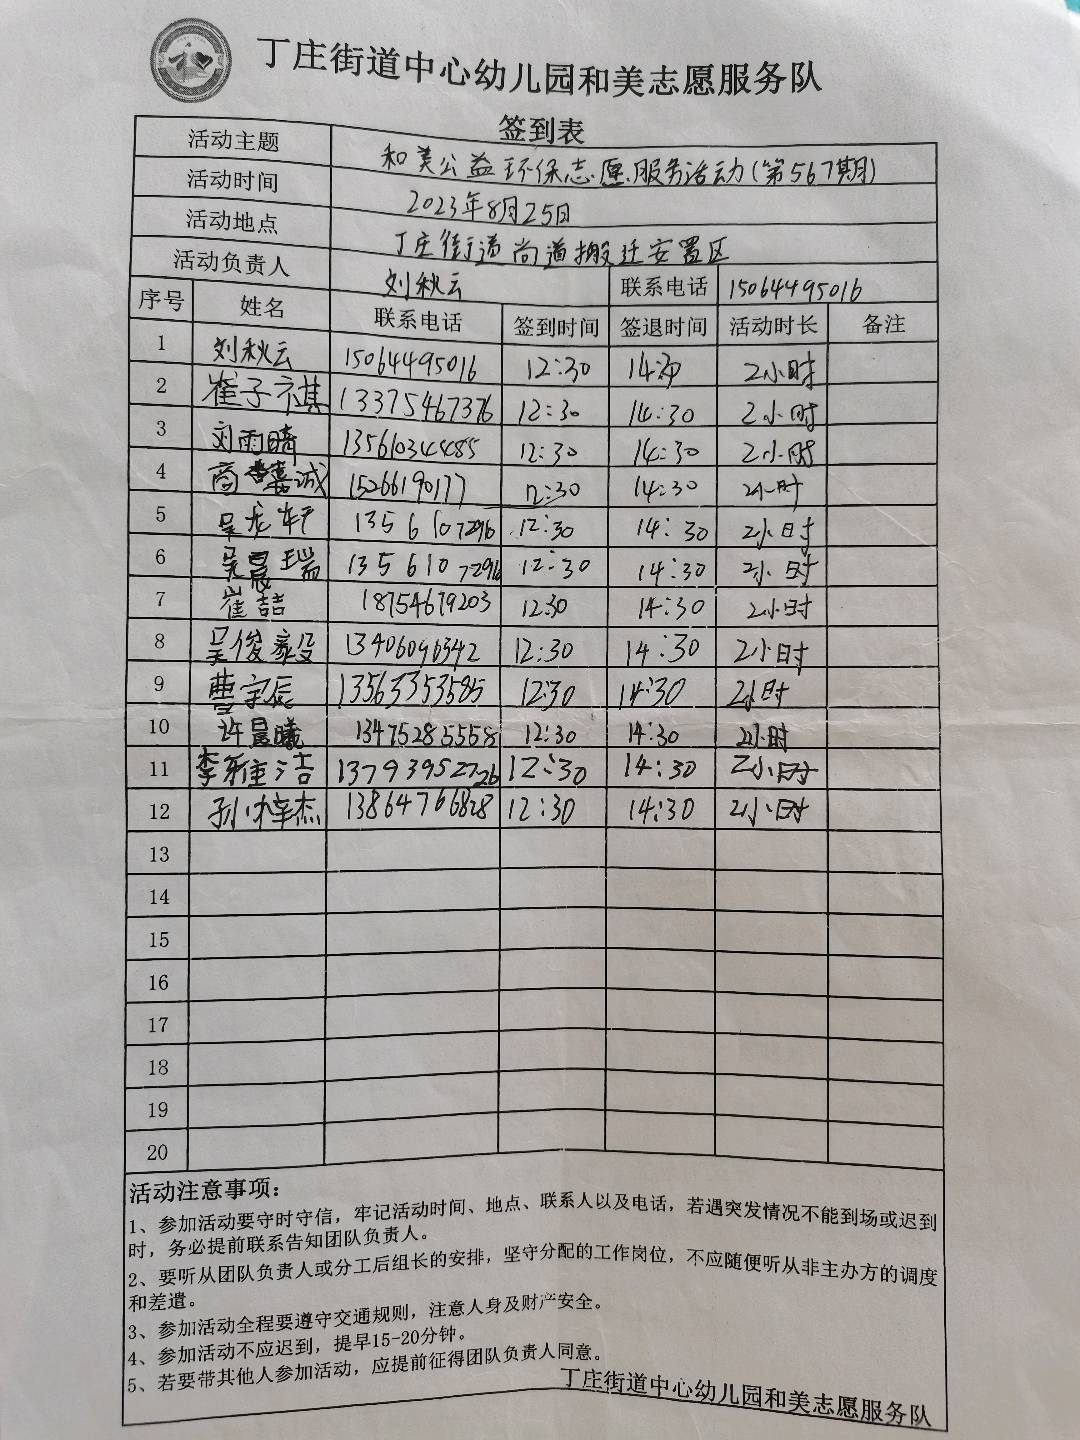 丁庄街道中心幼儿园和美志愿服务队
签到表
活动主题 和美公益环保志愿服务活动(第567期)
活动时间 2023年8月25日
活动地点 丁庄街道尚道搬迁安置区
活动负责人 刘秋云 联系电话 15064495016
序号 姓名 联系电话 签到时间 签退时间 活动时长 备注
1 刘秋云 15064495016 12:30 14:30 2小时
2 崔子祺 13375467376 12:30 14:30 2小时
3 刘雨晴 13561034485 12:30 14:30 2小时
4 商嘉诚 15266190177 12:30 14:30 2小时
5 吴龙轩 13561072916 12:30 14:30 2小时
6 吴晨瑞 13561072916 12:30 14:30 2小时
7 崔喆 18754679203 12:30 14:30 2小时
8 吴俊毅 13406096342 12:30 14:30 2小时
9 曹宇辰 13563353585 12:30 14:30 2小时
10 许晨曦 13475285558 12:30 14:30 2小时
11 李雅洁 13793952726 12:30 14:30 2小时
12 孙梓杰 13864766828 12:30 14:30 2小时
13
14
15
16
17
18
19
20
活动注意事项：
1、参加活动要守时守信，牢记活动时间、地点、联系人以及电话，若遇突发情况不能到场或迟到
时，务必提前联系告知团队负责人。
2、要听从团队负责人或分工后组长的安排，坚守分配的工作岗位，不应随便听从非主办方的调度
和差遣。
3、参加活动全程要遵守交通规则，注意人身及财产安全。
4、参加活动不应迟到，提早15-20分钟。
5、若要带其他人参加活动，应提前征得团队负责人同意。
丁庄街道中心幼儿园和美志愿服务队